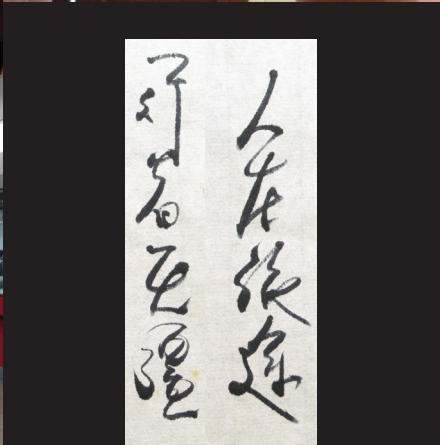 人在旅途
行者无疆